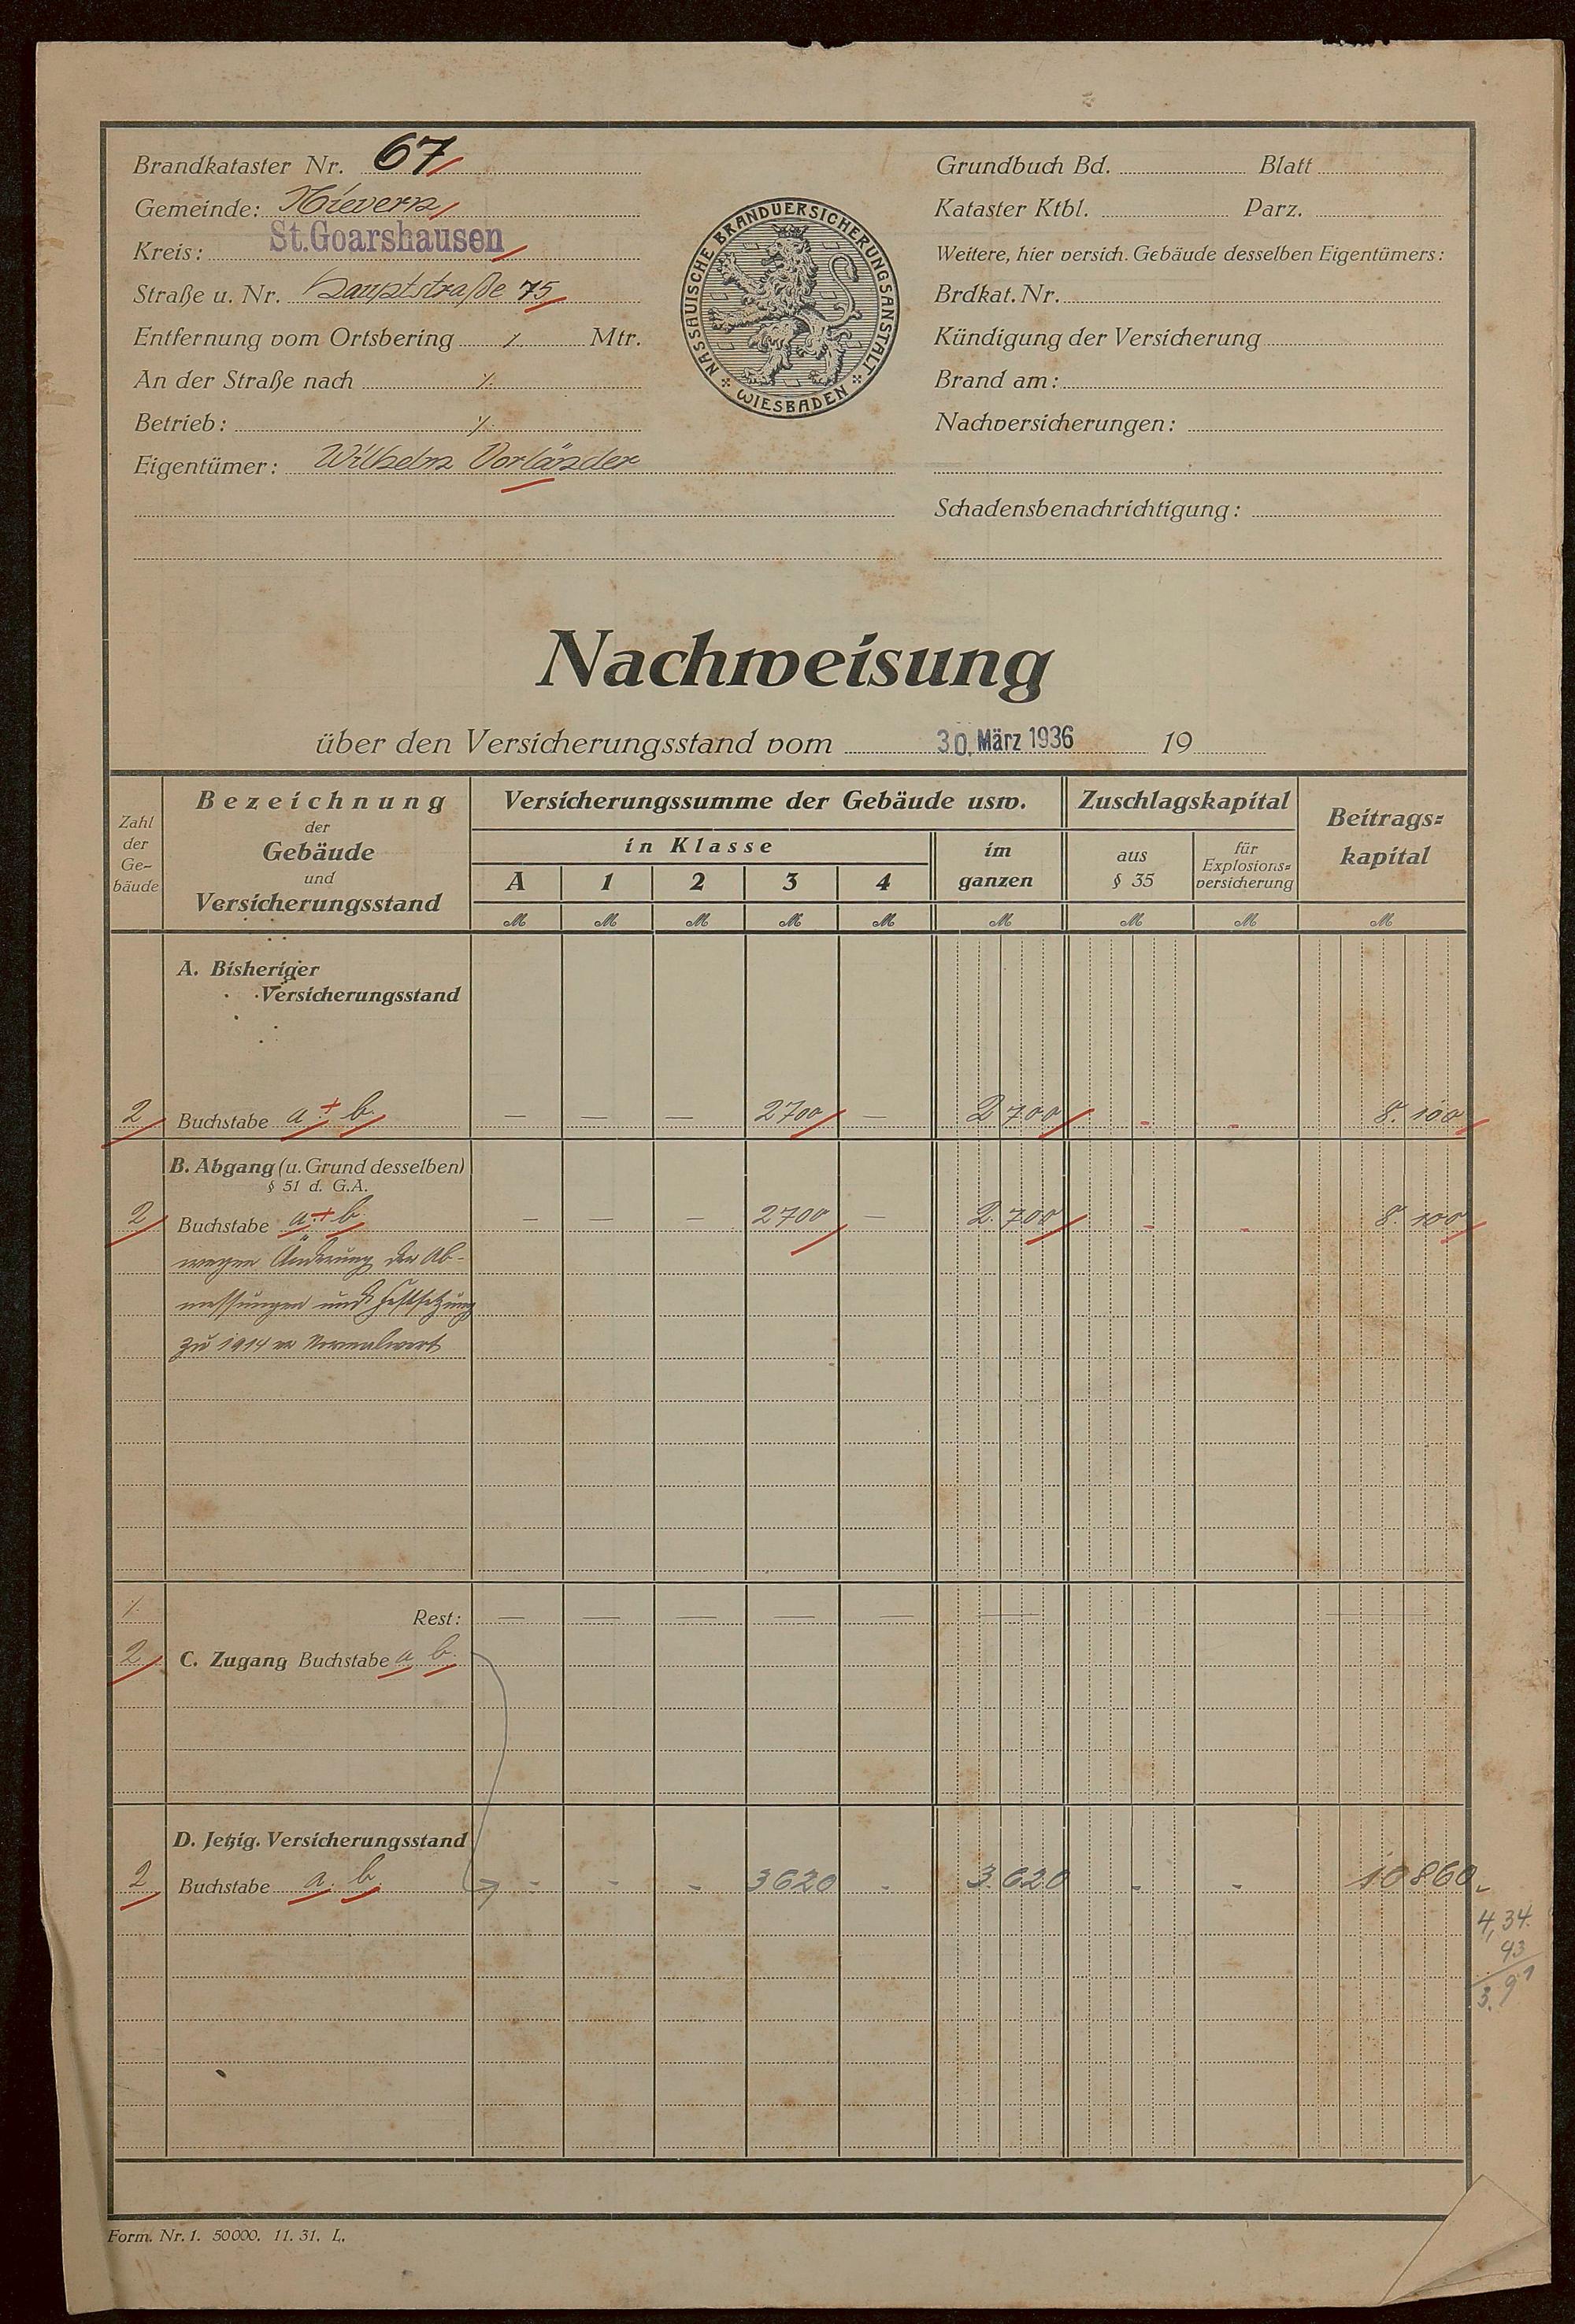 Brandkataster Nr. 67
Gemeinde: Nievern
Kreis: St.Goarshausen
Straße u. Nr. Hauptstraße 75
Entfernung vom Ortsbering ./. Mtr.
An der Straße nach ./.
Betrieb: ./.
Eigentümer: Wilhelm Vorländer
NASSAUISCHE BRANDVERSICHERUNGSANSTALT
WIESBADEN
Grundbuch Bd. Blatt
Kataster Ktbl. Parz.
Weitere, hier versich. Gebäude desselben Eigentümers:
Brdkat. Nr.
Kündigung der Versicherung
Brand am:
Nachversicherungen:
Schadensbenachrichtigung:
Nachweisung
über den Versicherungsstand vom 30. März 1936 19
Zahl der Ge- bäude
Bezeichnung der Gebäude und Versicherungsstand
Versicherungssumme der Gebäude usw.
in Klasse
A 1 2 3 4
im ganzen
Zuschlagskapital
aus § 35
für Explosions= versicherung
Beitrags= kapital
M M M M M M M M M
A. Bisheriger
Versicherungsstand
2 Buchstabe a + b. — — — 2700 — 2 700 - - 8. 100
B. Abgang (u. Grund desselben)
§ 51 d. G.A.
2 Buchstabe a + b — — — 2700 — 2. 700 - - 8. 100
wegen Änderung der Ab-
messungen und Festsetzung
zu 1914 er Normalwert
./. Rest: — — — — — — —
2 C. Zugang Buchstabe a b.
D. Jetzig. Versicherungsstand
2 Buchstabe a. b. - - - 3620 - 3.620 - - 10860.-
4,34.
43
3.91
Form. Nr. 1. 50000. 11. 31. L.